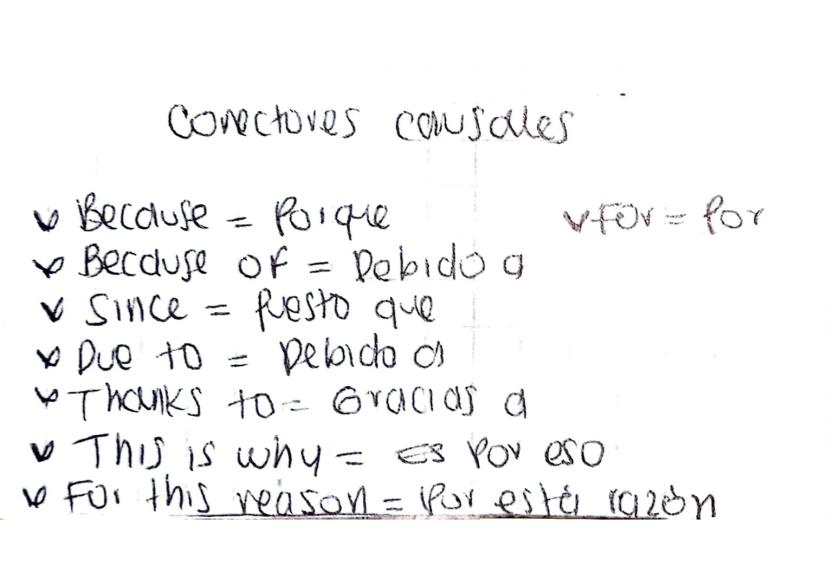 Conectores causales
✓ Because = Porque
✓ For = Por
✓ Because of = Debido a
✓ Since = Puesto que
✓ Due to = Debido a
✓ Thanks to = Gracias a
✓ This is why = Es por eso
✓ For this reason = Por está razón